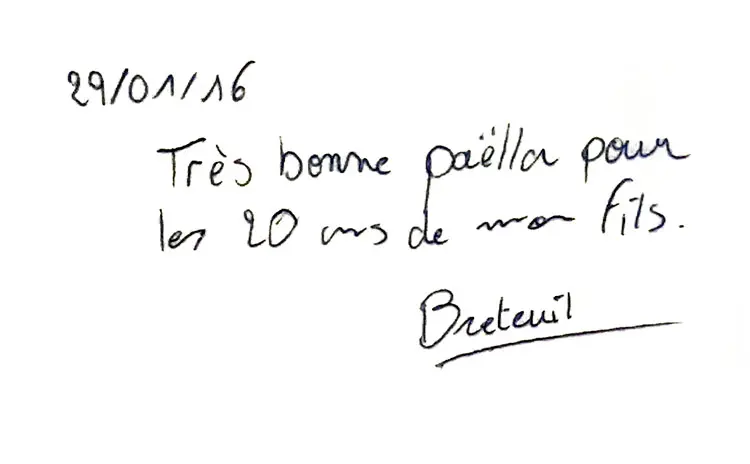 29/01/16
Très bonne paëlla pour
les 20 ans de mon fils.
Breteuil